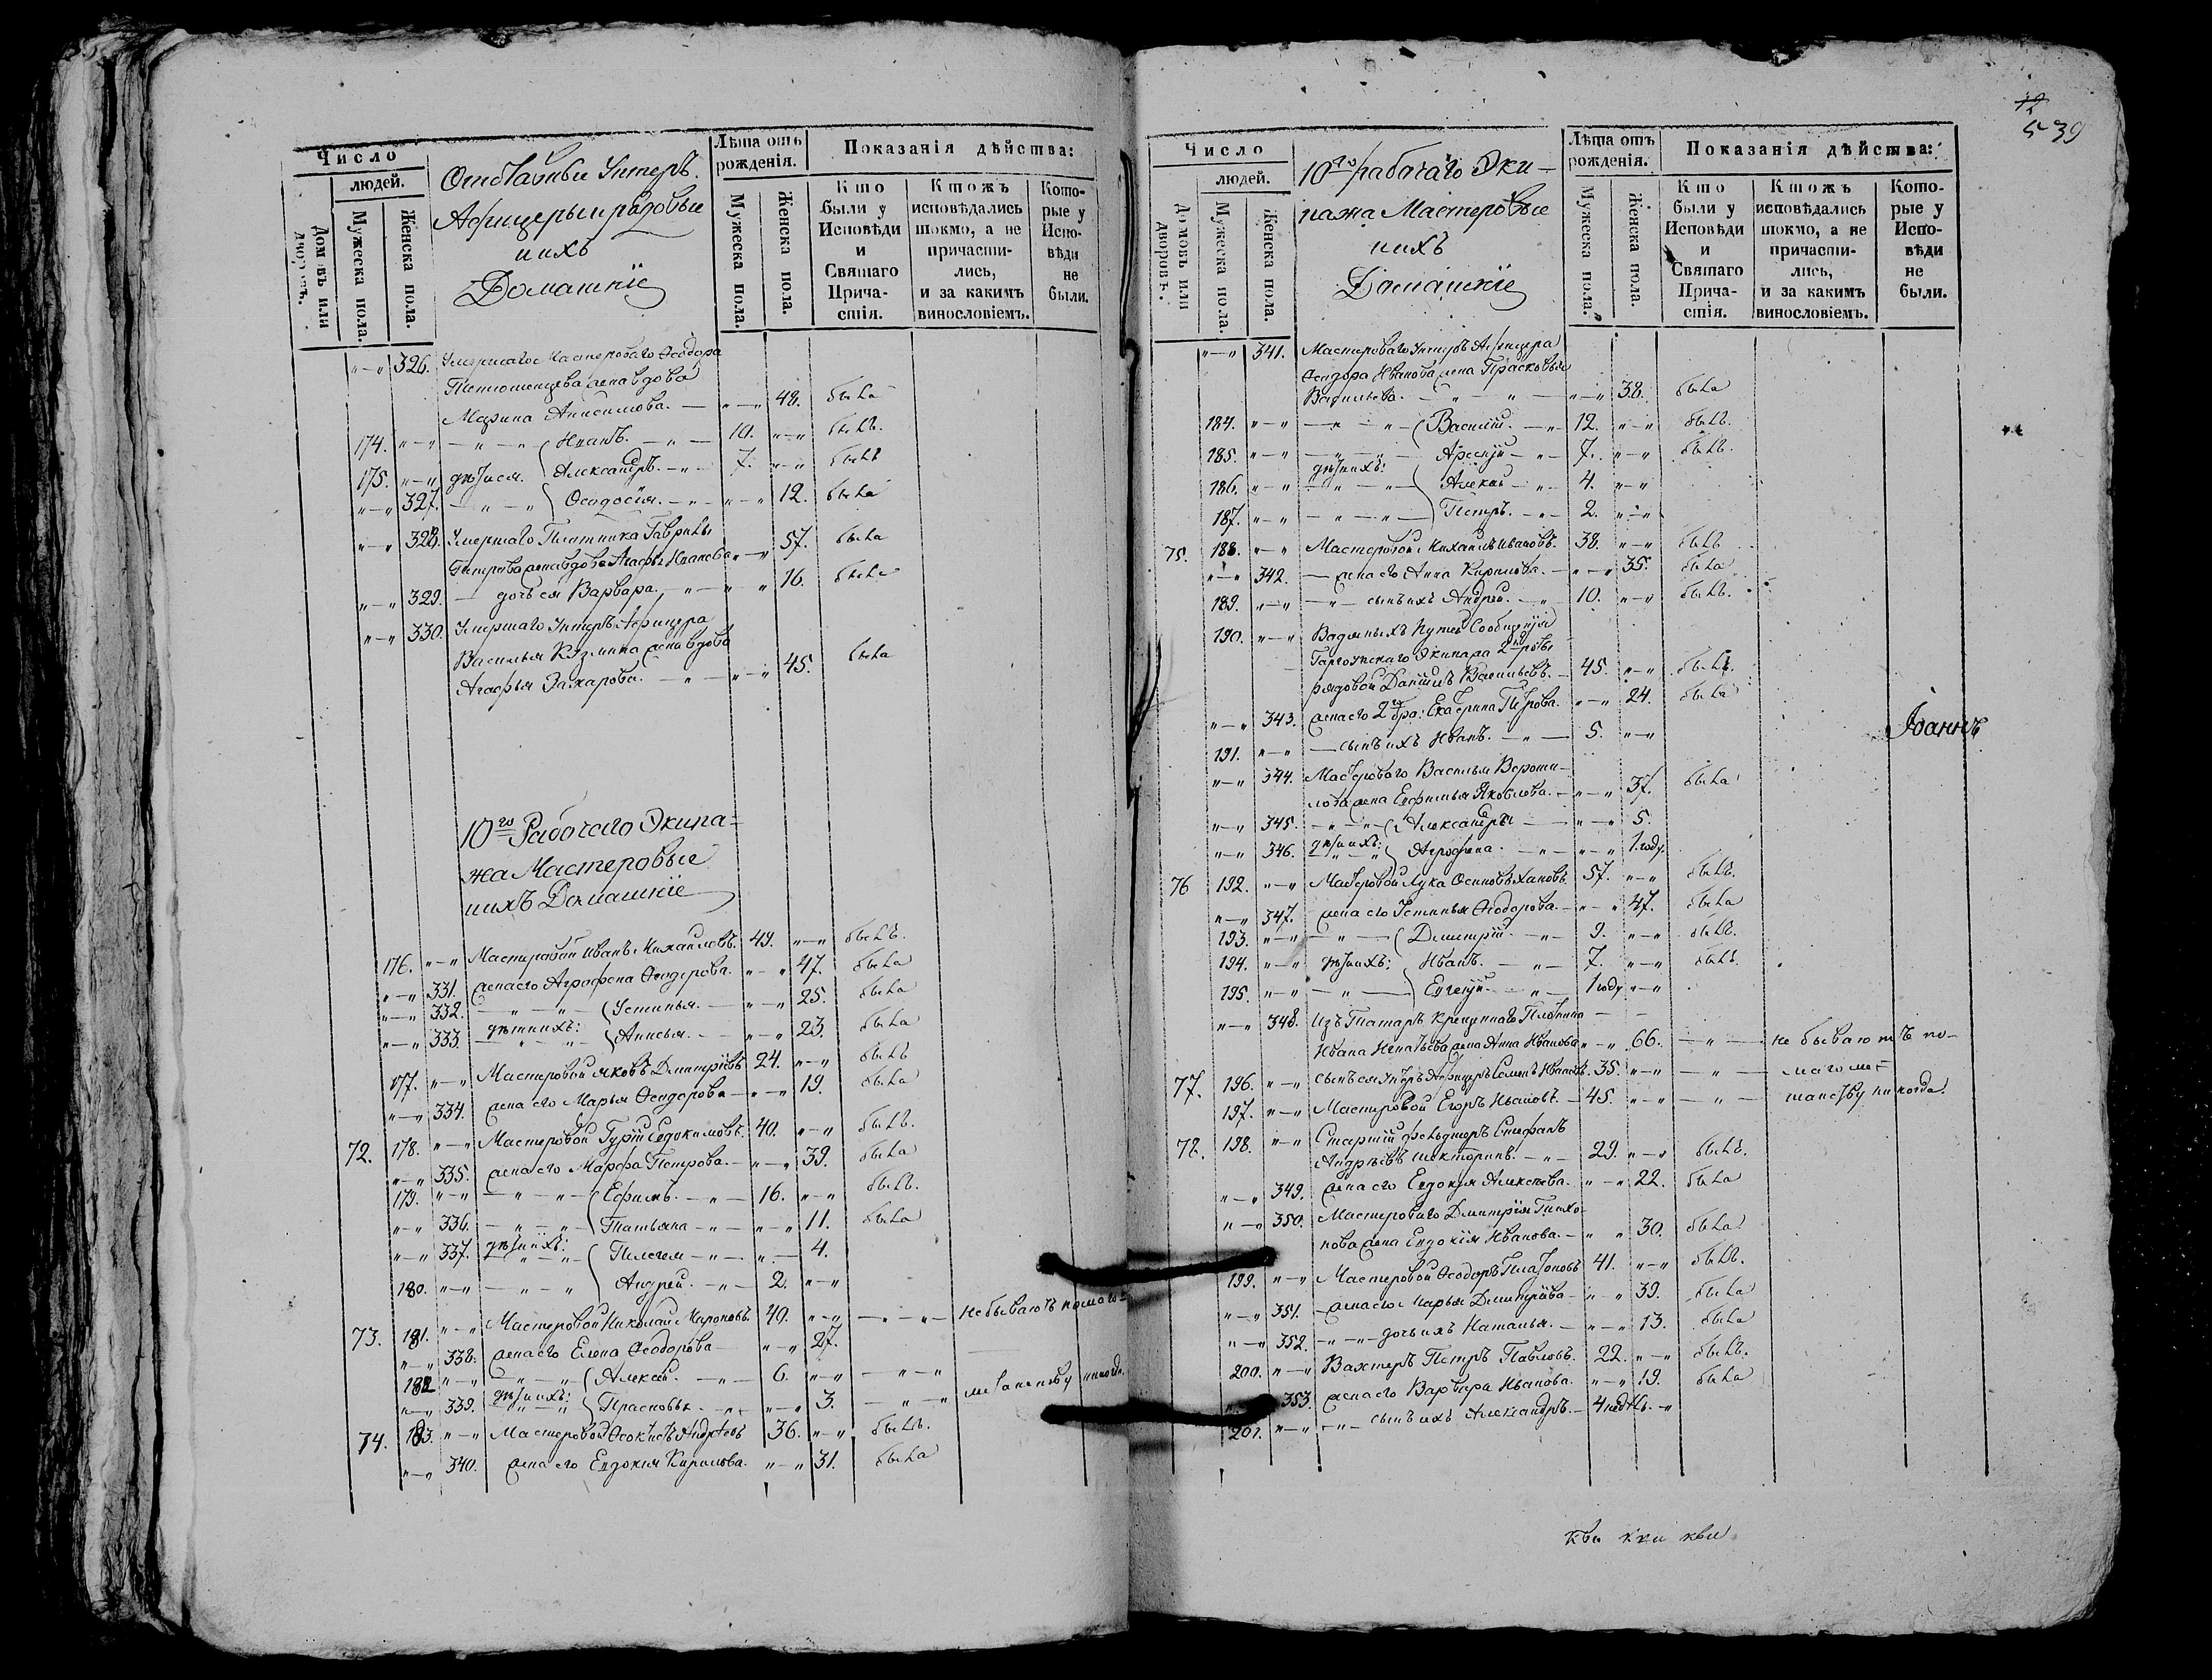 Число
людей.
Домовъ или дворовъ.
Мужеска пола.
Женска пола.
Отставные Унтеръ
Афицеры и рядовые
и ихъ
Домашніе
Лѣта отъ рожденія.
Мужеска пола.
Женска пола.
Показанія дѣйства:
Кто были у Исповѣди и Святаго Причастія.
Ктожъ исповѣдались токмо, а не причастились, и за какимъ винословіемъ.
Которые у Исповѣди не были.
"—" 326. Умершаго Мастероваго Ѳеодора
жена вдова
Марина Анисимова. — "—" 48. была
174. "—" — " — " Иванъ. — " — 10. "—" былъ.
175. "—" дѣти ея. Александръ. — " — 7. "—" былъ
"—" 327. — " — " Ѳеодосія. — " — "—" 12. была
"—" 328. Умершаго Плотника Гаврилы
Петрова жена вдова Агафья Иванова "—" 57. была
"—" 329. — дочь ея Варвара. " — " " 16. была
"—" 330. Умершаго Унтеръ Афицера
Василья Козмина жена вдова
Агафья Захарова. — " — "—" 45. была
10го Рабочаго Экипа=
жа Мастеровые
и ихъ Домашніе
176. "—" Мастеровой Иванъ Михаиловъ. 49. "—" былъ.
"—" 331. жена его Аграфена Ѳеодорова. "—" 47. была
"—" 332. — " — " Устинья. — "—" 25. была
"—" 333. дѣти ихъ: Анисья. — "—" 23. была
177. "—" Мастеровой Яковъ Дмитріевъ 24. "—" былъ
"—" 334 жена его Марья Ѳеодорова — "—" 19. была
72. 178. "—" Мастеровой Гурій Евдокимовъ. 40. "—" былъ.
"—" 335. жена его Марфа Петрова. — "—" 39. была
179. "—" — " — " Ефимъ. — " — 16. "—" былъ.
"—" 336. — " — " Татьяна — " — "—" 11. была
"—" 337. дѣти ихъ: Пелагея — " — "—" 4.
180. "—" — " — " Андрей. — " — 2. "—"
73. 181. "—" Мастеровой Николай Мироновъ. 40. "—" — " — не бываютъ по маго=
"—" 338. жена его Елена Ѳеодорова — "—" 27.
182 "—" — " — " Алексѣй. — " — 6. "—" — " — "
"—" 339. дѣти ихъ: Прасковья. — "—" 3. — " — " метанству никогда.
74. 183. "—" Мастеровой Андреевъ 36. "—" былъ.
"—" 340. жена его Евдокія Кирилова. "—" 31. была
12
539
Число
людей.
Домовъ или дворовъ.
Мужеска пола.
Женска пола.
10го рабочаго Эки—
пажа Мастеровые
и ихъ
Домашніе
Лѣта отъ рожденія.
Мужеска пола.
Женска пола.
Показанія дѣйства:
Кто были у Исповѣди и Святаго Причастія.
Ктожъ исповѣдались токмо, а не причастились, и за какимъ винословіемъ.
Которые у Исповѣди не были.
"—" 341. Мастероваго Унтеръ Афицера
Ѳеодора Иванова жена Прасковья
Васильева. — " — " — "—" 38. была
184. "—" — " — " Василій. — " 12. "—" былъ.
185. "—" — " — " Арсеній — " — 7. "—" былъ.
186. "—" дѣти ихъ: Алексѣй — " — 4. "—"
187. "—" — " — " Петръ. — " — 2. "—"
75. 188. "—" Мастеровой Михаилъ Ивановъ. 38. "—" былъ
"—" 342. — жена его Анна Кирилова. — "—" 35. была
189. "—" — " — сынъ ихъ Андрей. — " 10. "—" былъ.
190. "—" Водяныхъ Путей Сообщенія
Экипажа 2й роты
рядовой Даніилъ Васильевъ. — 45. "—" былъ.
"—" 343. жена его 2го бра: Екатерина Петрова. "—" 24. была
191. "—" — сынъ ихъ Иванъ. — " — 5. "—"
Іоаннъ
"—" 344. Мастероваго Василья Вороти—
лова жена Евфимья Яковлева. — "—" 37. была
"—" 345. — " — " Александра — "—" 5.
"—" 346. дѣти ихъ: Агрофена. — " — "—" 1 году.
76 192. "—" Мастеровой Лука Осиповъ 57. "—" былъ.
"—" 347. жена его Устинья Ѳеодорова. — "—" 47. была
193. "—" — " — Дмитрій. — " — 9. "—" былъ.
194. "—" дѣти ихъ: Иванъ. — " — 7. "—" былъ.
195. "—" — " — Евгеній. — " — 1 году "—"
"—" 348. Изъ Татаръ крещеннаго Плотника — —
Ивана Игнатьева жена Анна Иванова "—" 66. — " — не бываютъ по—
77. 196. "—" сынъ ея Унтеръ Афицеръ Семенъ Ивановъ. 35. "—" — " — магоме=
197. "—" Мастеровой Егоръ Ивановъ. — 45. "—" — " — танству никогда.
78. 198. "—" Старшій фельдшеръ Стефанъ
Андрѣевъ — " — 29. "—" былъ.
"—" 349. жена его Евдокія Алексѣева. "—" 22. была
"—" 350. Мастероваго Дмитрія Тихо—
нова жена Евдокія Иванова. — " " 30. была
199. "—" Мастеровой Ѳеодоръ Платоновъ 41. "—" былъ.
"—" 351. жена его Марья Дмитріева — "—" 39. была
"—" 352. — " — дочь ихъ Наталья. — "—" 13. была
200. "—" Вахтеръ Петръ Павловъ. 22. "—" былъ.
353. жена его Варвара Иванова. "—" 19. была
201. "—" — " — сынъ ихъ Александръ. — 4 недѣль. "